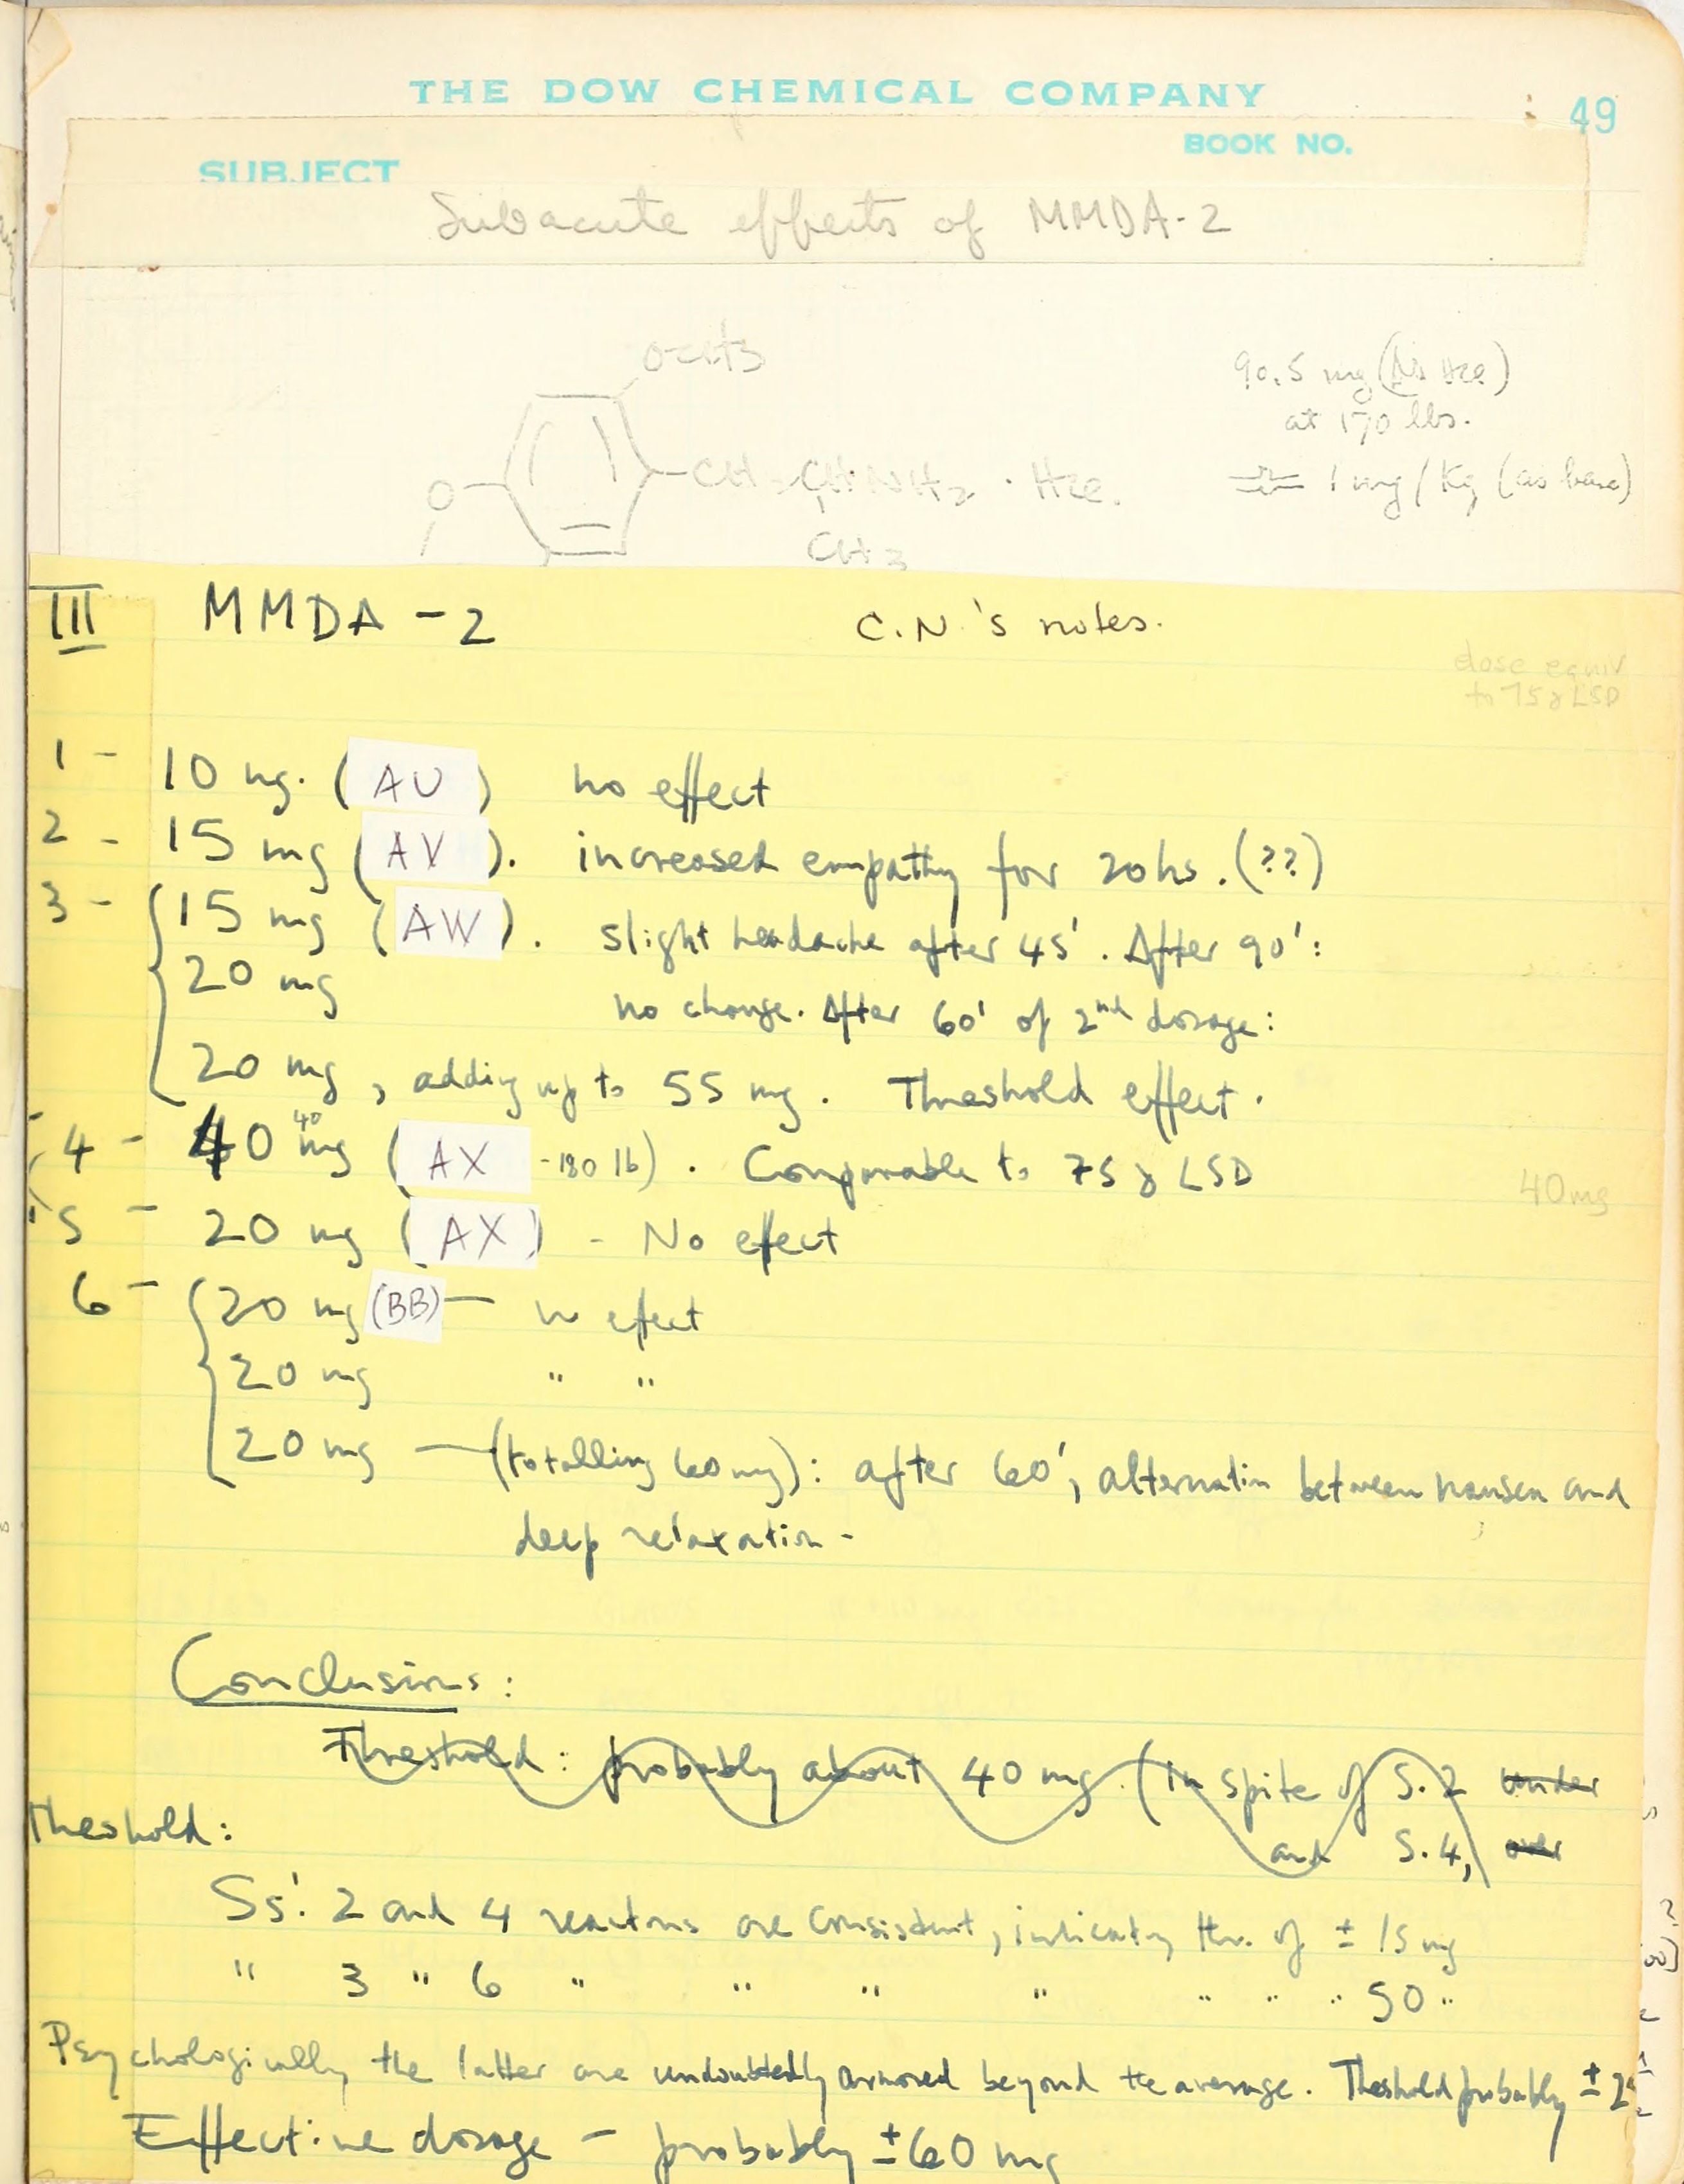 THE DOW CHEMICAL COMPANY
49
BOOK NO.
SUBJECT
Subacute effects of MMDA-2
OCH3
90.5 mg (As Hcl)
at 170 lbs.
1 mg/Kg (as base)
O
CH2 CH NH2 · Hcl.
CH3
III MMDA-2 C.N.'s notes.
dose equiv
to 75γ LSD
1 - 10 mg. (AU) no effect
2 - 15 mg (AV). increased empathy for 20hs. (??)
3 - 15 mg (AW). slight headache after 45'. After 90':
20 mg no change. After 60' of 2nd dosage:
20 mg, adding up to 55 mg. Threshold effect.
40
4 - 40 mg (AX -180 lb). Comparable to 75γ LSD
40mg
5 - 20 mg (AX) - No efect
6 - 20 mg (BB) - no efect
20 mg " "
20 mg — (totalling 60 mg): after 60', alternatin between nausea and
deep relaxation -
Conclusions:
Threshold: probably about 40 mg. (in spite of S.2 under
and S.4, over
Theshold:
Ss'. 2 and 4 reactions are consistent, indicating thr. of ± 15 mg
" 3 " 6 " " " " " " " 50 "
Psychologically the latter are undoubtedly armored beyond the average. Theshold probably ±
Effective dosage - probably ±60 mg